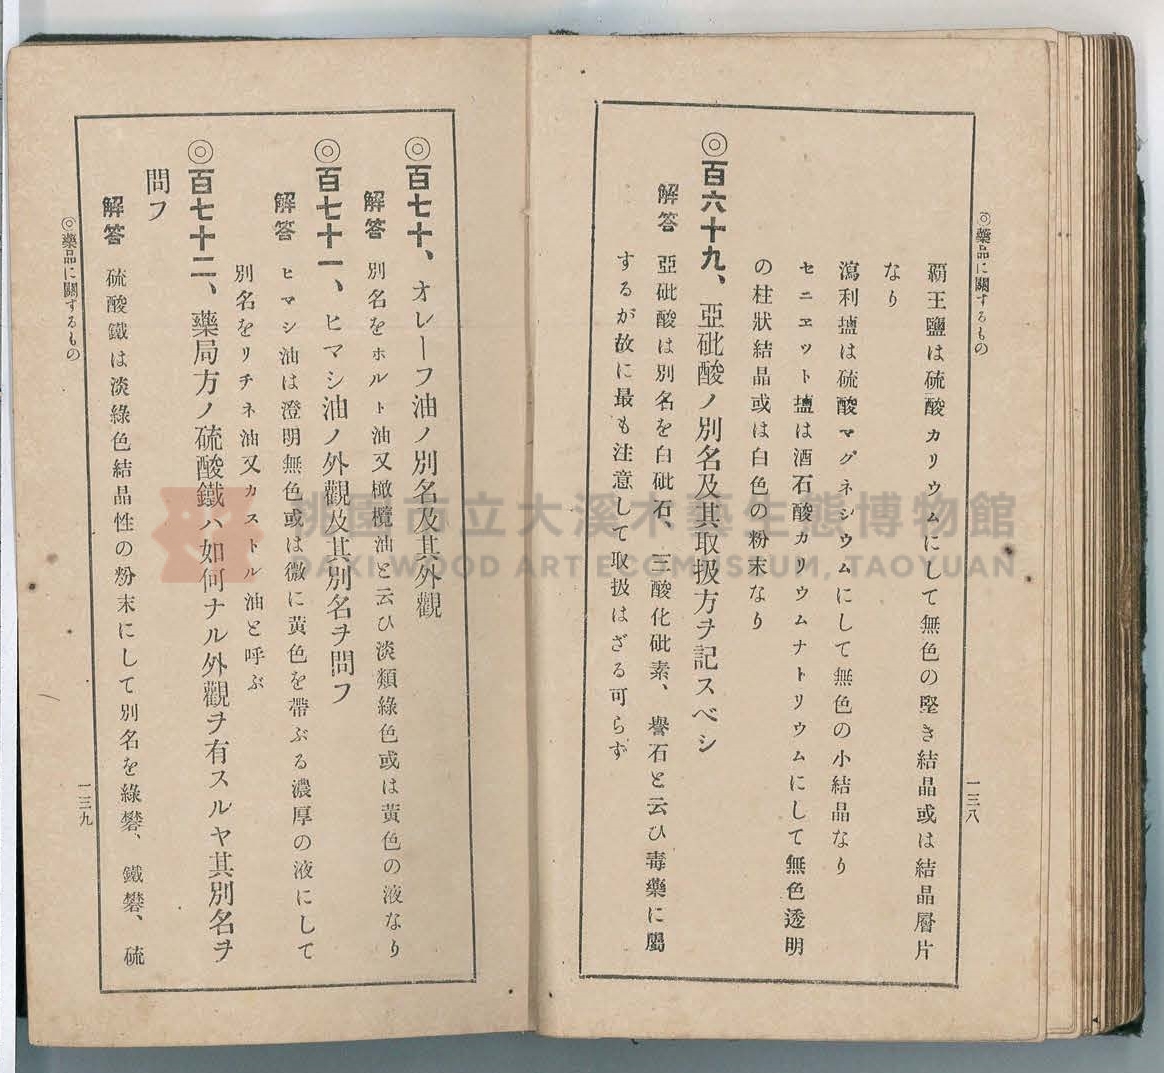 ◎藥品に關するもの
一三八
覇王鹽は硫酸カリウムにして無色の堅き結晶或は結晶層片
なり
瀉利塩は硫酸マグネシウムにして無色の小結晶なり
セニヱット塩は酒石酸カリウムナトリウムにして無色透明
の柱狀結晶或は白色の粉末なり
◎百六十九、亞砒酸ノ別名及其取扱方ヲ記スベシ
解答 亞砒酸は別名を白砒石、三酸化砒素、礬石と云ひ毒藥に屬
するが故に最も注意して取扱はざる可らず
◎百七十、オレーフ油ノ別名及其外觀
解答 別名をホルト油又橄欖油と云ひ淡類綠色或は黃色の液なり
◎百七十一、ヒマシ油ノ外觀及其別名ヲ問フ
解答 ヒマシ油は澄明無色或は微に黃色を帶ぶる濃厚の液にして
別名をリチネ油又カストル油と呼ぶ
◎百七十二、藥局方ノ硫酸鐵ハ如何ナル外觀ヲ有スルヤ其別名ヲ
問フ
解答 硫酸鐵は淡綠色結晶性の粉末にして別名を綠礬、鐵礬、硫
◎藥品に關するもの
一三九
桃園市立大溪木藝生態博物館
DAXI WOOD ART ECOMUSEUM, TAOYUAN